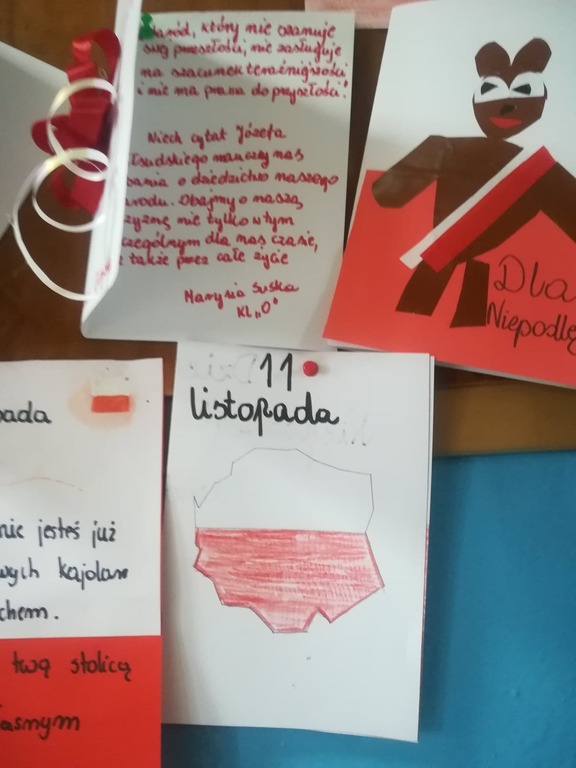 Naród, który nie szanuje
swej przeszłości, nie zasługuje
na szacunek teraźniejszości
i nie ma prawa do przyszłości!
Niech cytat Józefa
łsudskiego nauczy nas
bania o dziedzictwo naszego
arodu. Dbajmy o naszą
zyznę nie tylko w tym
czególnym dla nas czasie,
także przez całe życie
Marysia Suska
KL „O"
Dla
Niepodle
11
listopada
pada
nie jesteś już
wych kajdan
chem.
twą stolicą
asnym